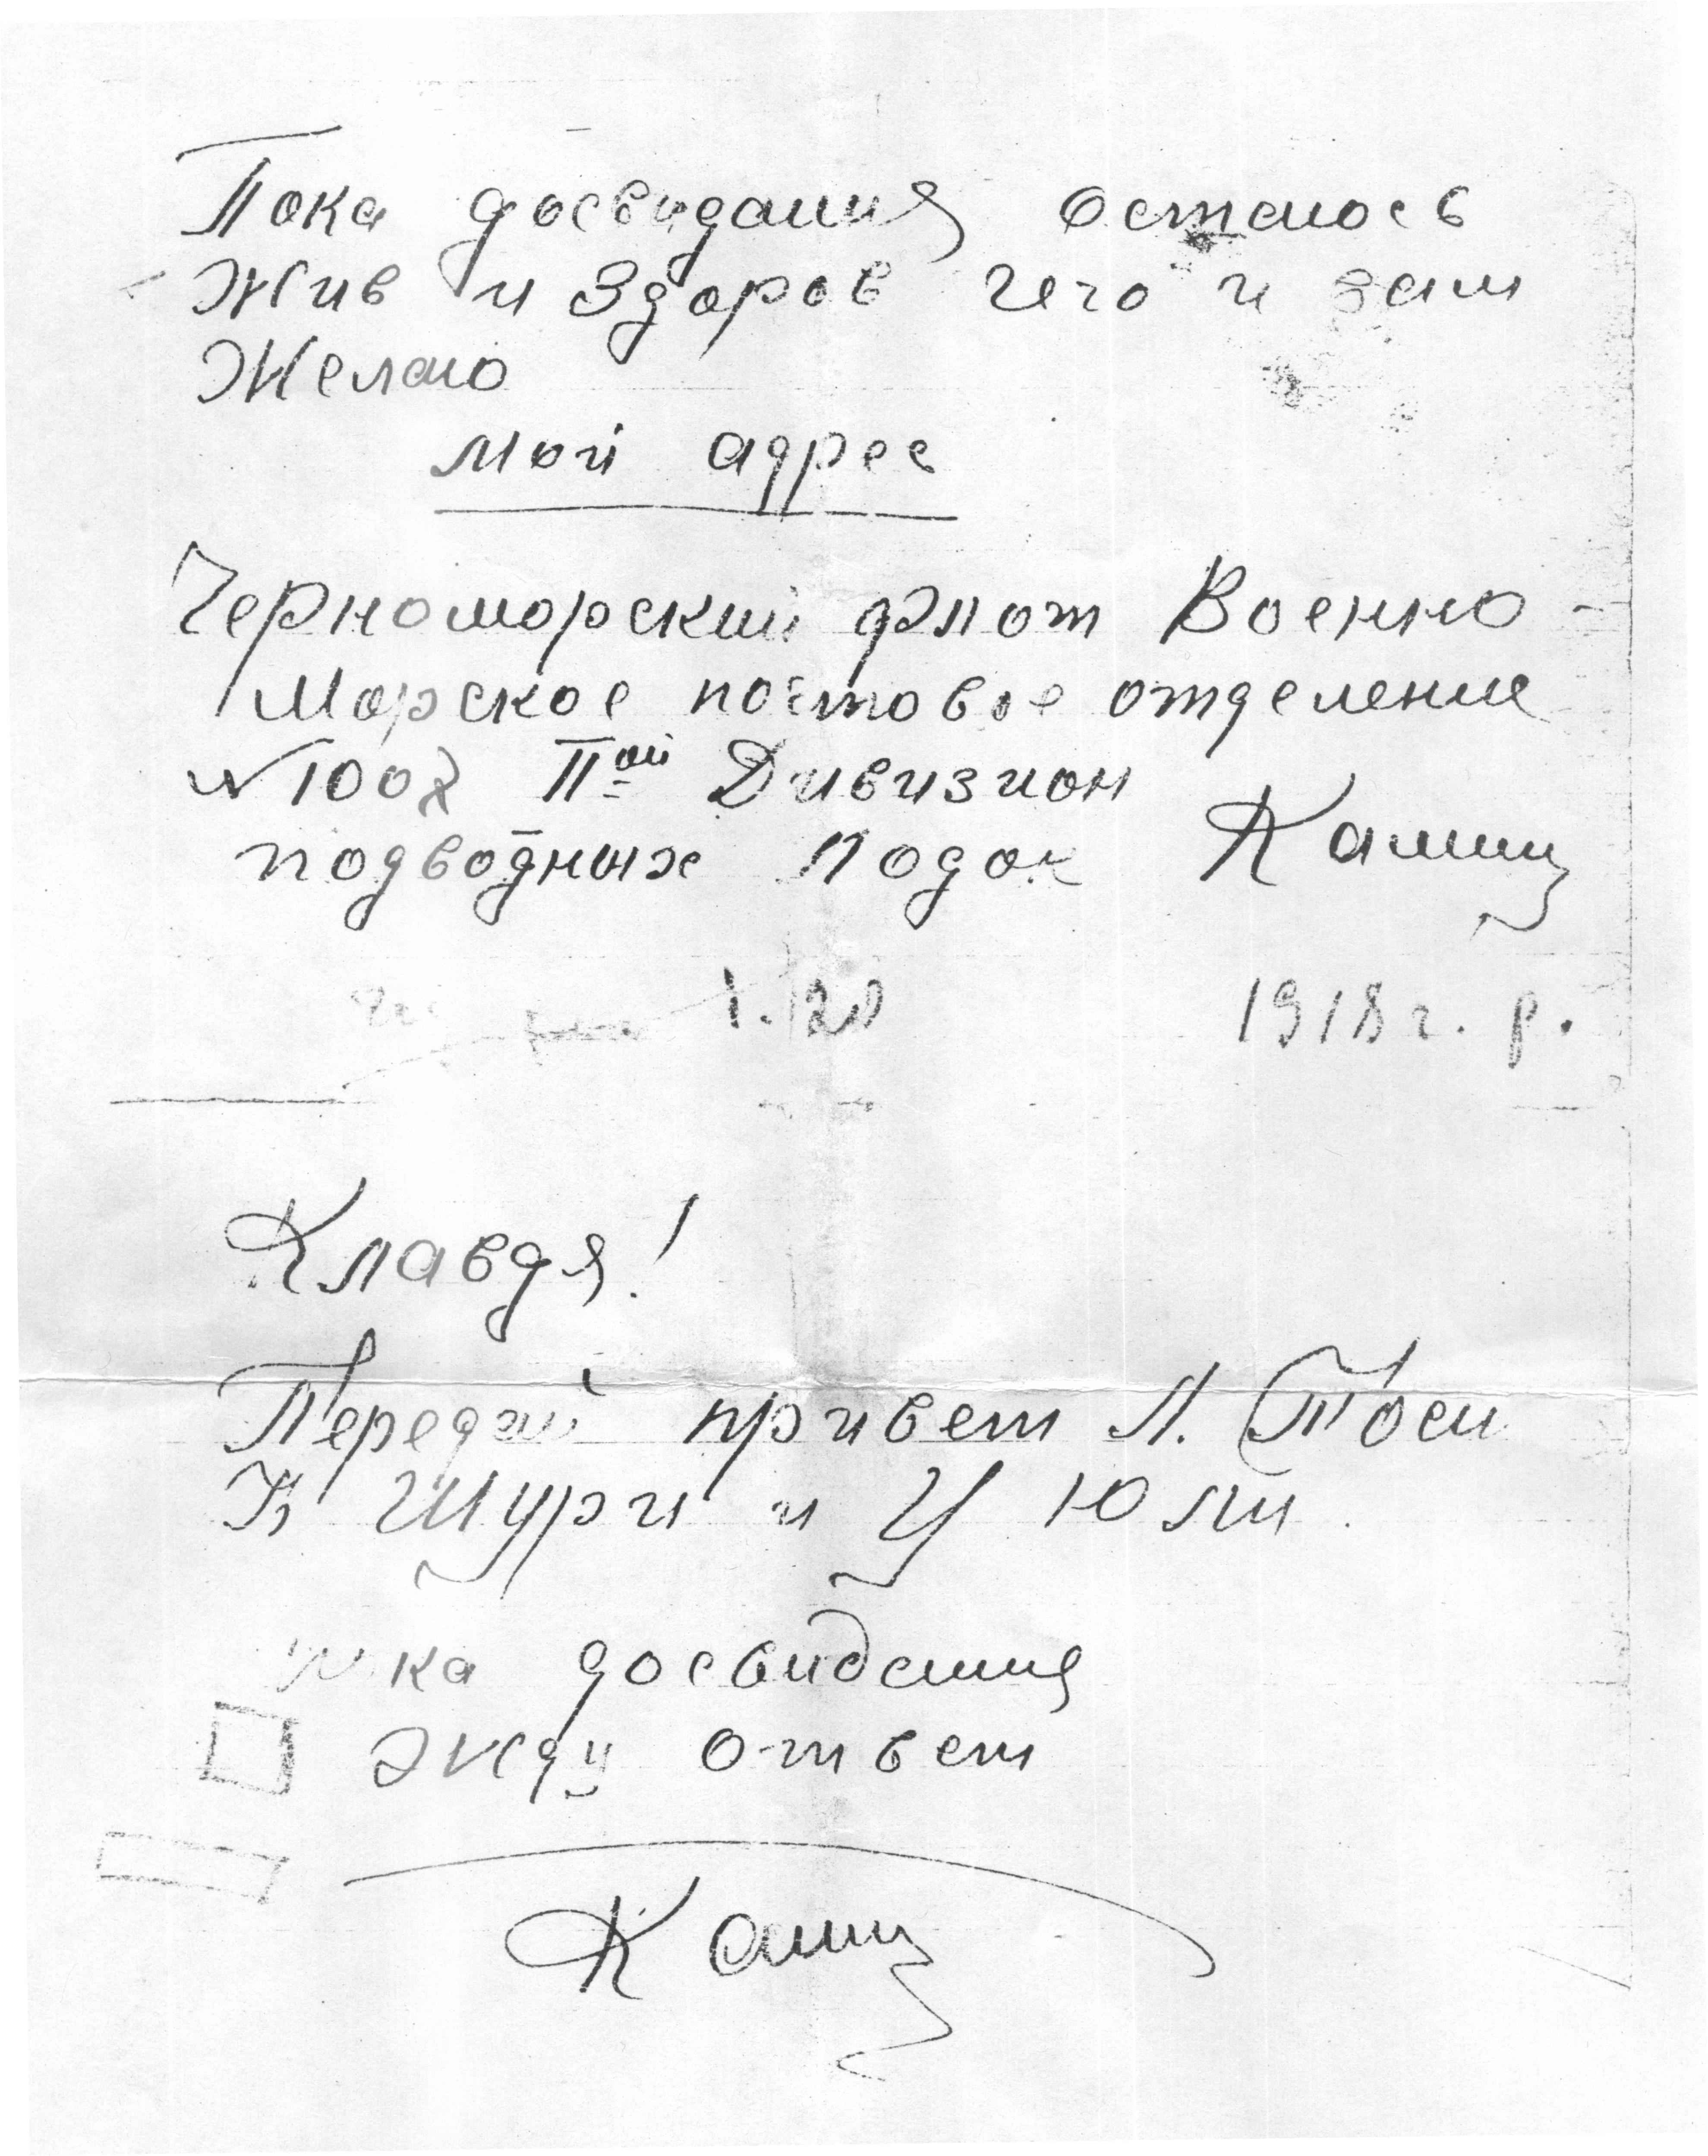 Пока досвидания остаюсь
Жив и здоров чего и вам
Желаю
мой адрес
Черноморский флот Военно-
Морское почтовое отделение
№ 1007 IIой Дивизион
подводных лодок Камин
1918 г. р.
Клавдя!
Передай привет Л. Тоси
К Шури и У Юли.
Пока досвидания
Жду ответ
Камин